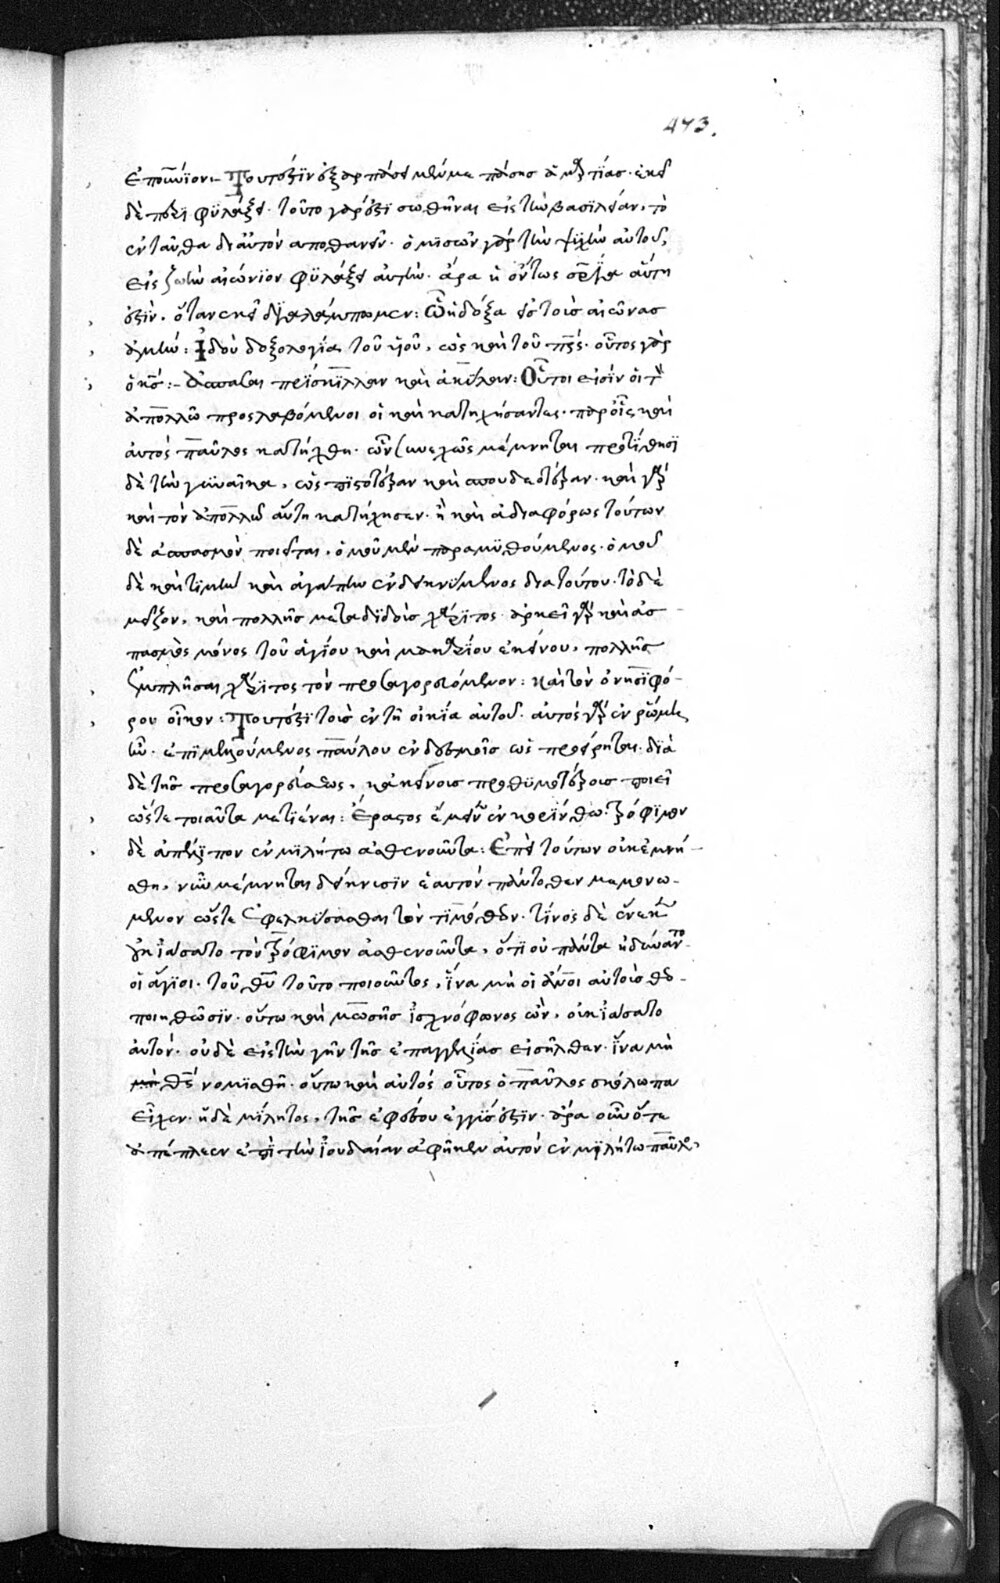 473.
ἐπουνίον:– Τουτέστιν ἐξ παντὸς πάσης ἁμαρτίας. ἐκεῖ
δὲ πάλιν φυλάξει. τοῦτο γάρ ἐστι σωθῆναι εἰς τὴν βασιλείαν, τὸ
ἐνταῦθα δι αὐτὸν ἀποθανεῖν. ὁ μισῶν γὰρ τὴν ψυχὴν αὐτοῦ,
εἰς ζωὴν αἰώνιον φυλάξει αὐτήν. ἄρα ἡ ὄντως σωτηρία αὕτη
ἐστὶν. ὅταν ἐκεῖ διαλάμπωμεν: Ὧ ἡ δόξα εἰς τοὺς αἰῶνας
ἀμήν: Ἰδοὺ δοξολογία τοῦ υἱοῦ, ὡς καὶ τοῦ πρς. οὗτος γὰρ
ὁ κς:– Ἄσπασαι πρίσκιλλαν καὶ ἀκύλαν: Οὗτοι εἰσὶν οἱ τὸν
ἀπολλὼ προσλαβόμενοι οἱ καὶ κατηχήσαντες. παρ οἷς καὶ
αὐτὸς παῦλος κατήχθη. ὧν συνεχῶς μέμνηται προτίθησι
δὲ τὴν γυναῖκα, ὡς πιστοτέραν καὶ σπουδαιοτέραν. καὶ γὰρ
καὶ τὸν ἀπολλὼ αὕτη κατήχησεν. ἢ καὶ ἀδιαφόρως τούτων
δὲ ἀσπασμὸν ποιεῖται, ὁμοῦ μὲν παραμυθούμενος. ὁμοῦ
δὲ καὶ τιμὴν καὶ ἀγάπην ἐνδεικνύμενος διὰ τούτου. τὸ δὲ
μεῖζον, καὶ πολλῆς μεταδιδοὺς χάριτος. ἀρκεῖ γὰρ καὶ ἀσ
πασμὸς μόνος τοῦ ἁγίου καὶ μακαρίου ἐκείνου, πολλῆς
ἐμπλῆσαι χάριτος τὸν προσαγορευόμενον: Καὶ τὸν ὀνησιφό-
ρου οἶκον: Τουτέστι τοὺς ἐν τῇ οἰκίᾳ αὐτοῦ. αὐτὸς γὰρ ἐν ῥώμῃ
ἦν. ἐπιμελούμενος παύλου ἐν δεσμοῖς ὡς προείρηται. διὰ
δὲ τῆς προσαγορεύσεως, κἀκείνους προθυμοτέρους ποιεῖ
ὥστε τοιαῦτα μετιέναι: Ἔραστος ἔμεινεν ἐν κορίνθω. Τρόφιμον
δὲ ἀπέλιπον ἐν μιλήτω ἀσθενοῦντα: Ἐπεὶ τούτων οὐκ ἐμνή-
σθη, νῦν μέμνηται δεικνύσιν ἑαυτὸν πάντοθεν μεμονω-
μένον ὥστε ἐφελκύσασθαι τὸν τιμόθεον. τίνος δὲ ἕνεκεν
οὐκ ἰάσατο τὸν τρόφιμον ἀσθενοῦντα, ὅτι οὐ πάντα ἠδύναντο
οἱ ἅγιοι. τοῦ θυ τοῦτο ποιοῦντος, ἵνα μὴ οἱ ἄνοι αὐτοὺς θε-
ποιηθῶσιν. οὕτω καὶ μωσῆς ἰσχνόφωνος ὤν, οὐκ ἰάσατο
αὐτόν. οὐδὲ εἰς τὴν γῆν τῆς ἐπαγγελίας εἰσῆλθεν. ἵνα μὴ
θς νομισθῇ. οὕτω καὶ αὐτὸς οὗτος ὁ παῦλος σκόλοπα
εἶχεν. ἡ δὲ μίλητος, τῆς ἐφέσου ἐγγύς ἐστιν. ἄρα οὖν ὅτε
ἀπέπλεεν ἐπὶ τὴν ἰουδαίαν ἀφῆκεν αὐτὸν ἐν μιλήτω παῦλος